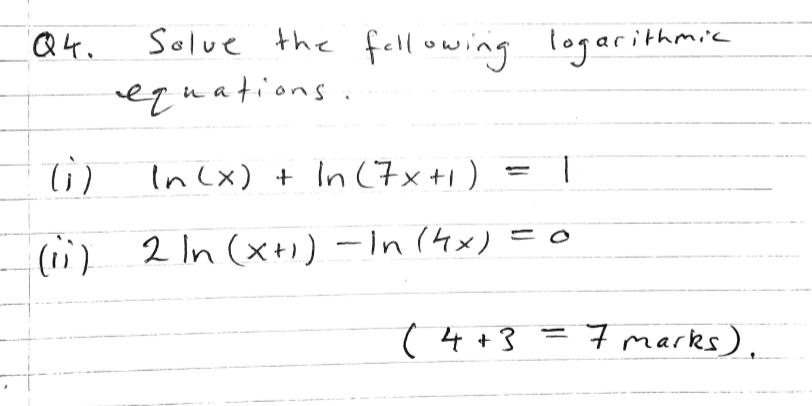 Q4. Solve the following logarithmic
equations.
(i) ln(x) + ln(7x+1) = 1
(ii) 2 ln(x+1) - ln(4x) = 0
(4+3 = 7 marks).